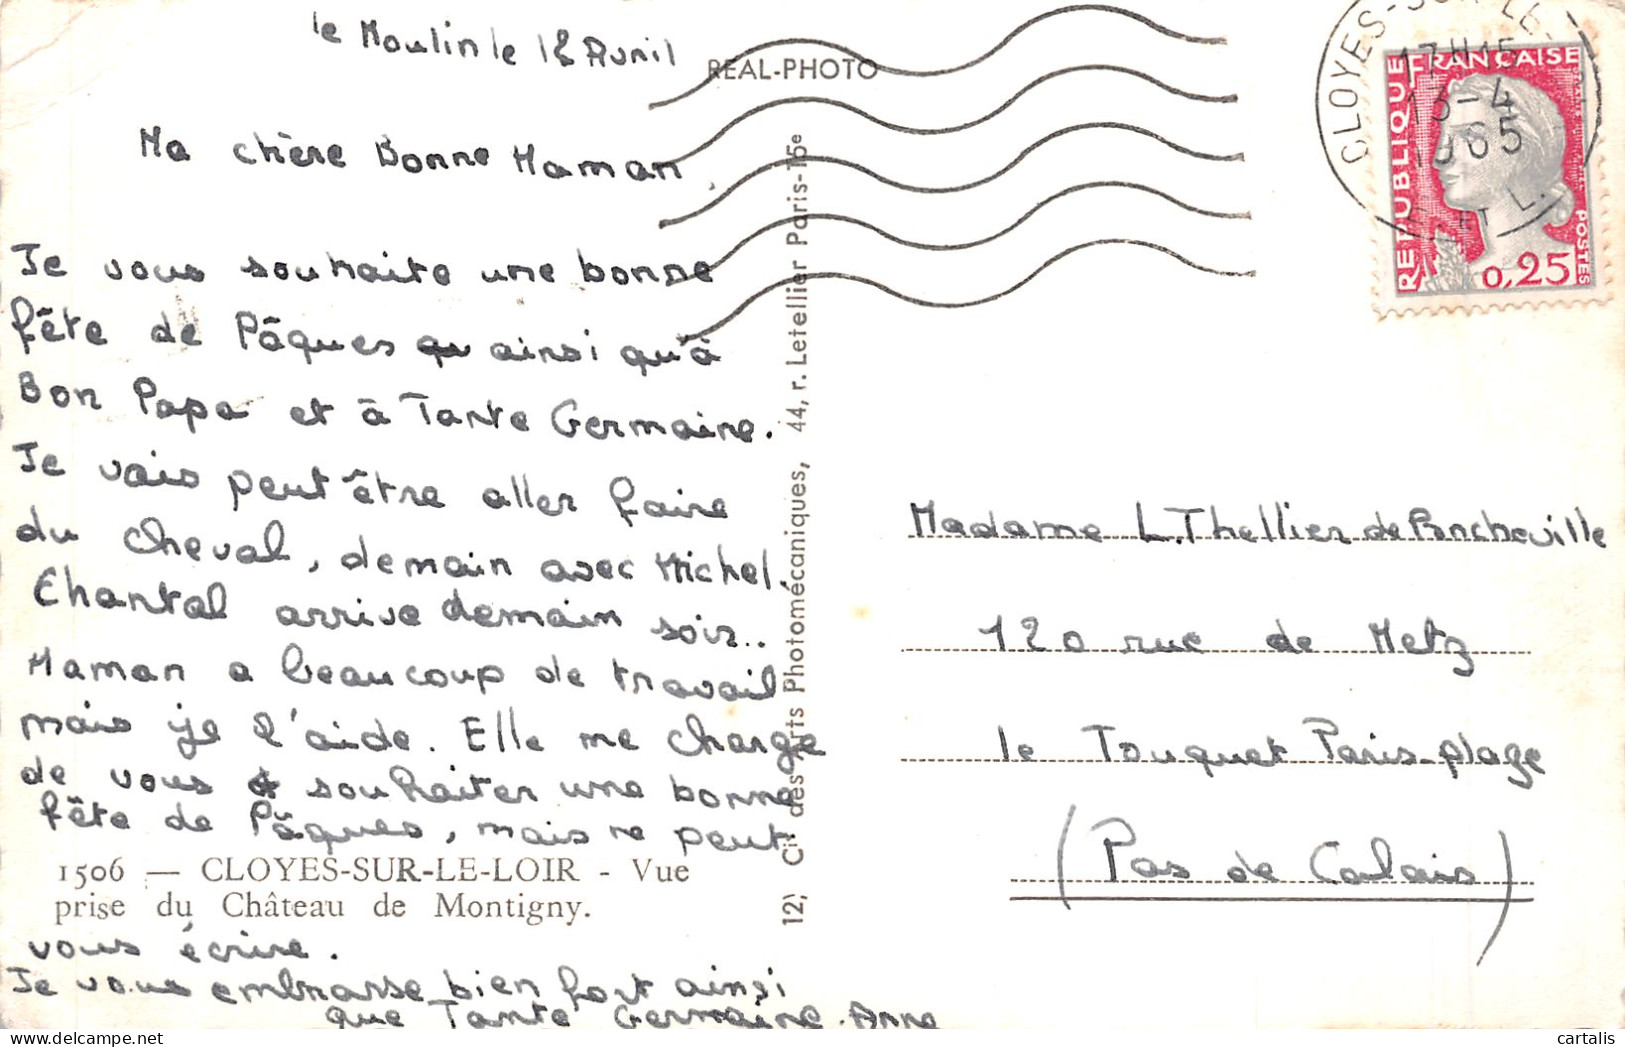 le Moulin le 12 Avril
Ma chère Bonne Maman,
Je vous souhaite une bonne
fête de Pâques ainsi qu'à
Bon Papa et à Tante Germaine.
Je vais peut être aller faire
du cheval, demain avec Michel.
Chantal arrive demain soir..
Maman a beaucoup de travail
mais je l'aide. Elle me charge
de vous souhaiter une bonne
fête de Pâques, mais ne peut
1506 — CLOYES-SUR-LE-LOIR - Vue
prise du Château de Montigny.
vous écrire.
Je vous embrasse bien fort ainsi
que Tante Germaine. Anne
REAL-PHOTO
12) Cie des Arts Photomécaniques, 44, r. Letellier Paris-15e
CLOYES-SUR-LE-
17H15
13-4
1965
E. ET L.
REPUBLIQUE FRANÇAISE
POSTES
0,25
Madame L. Thellier de Poncheville
120 rue de Metz
le Touquet Paris-plage
(Pas de Calais)
cartalis